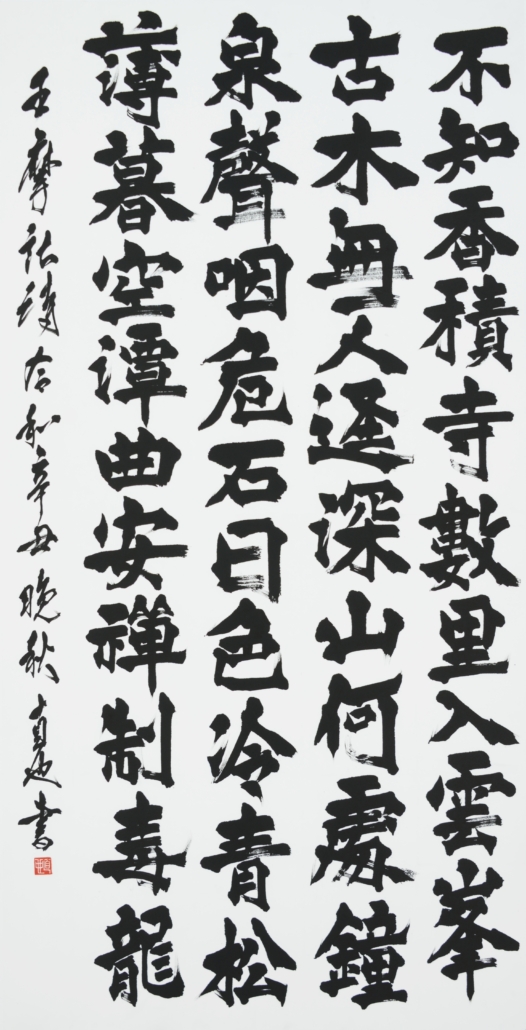 不知香積寺數里入雲峯
古木無人逕深山何處鐘
泉聲咽危石日色冷青松
薄暮空潭曲安禪制毒龍
王摩詰詩令和辛丑晩秋書